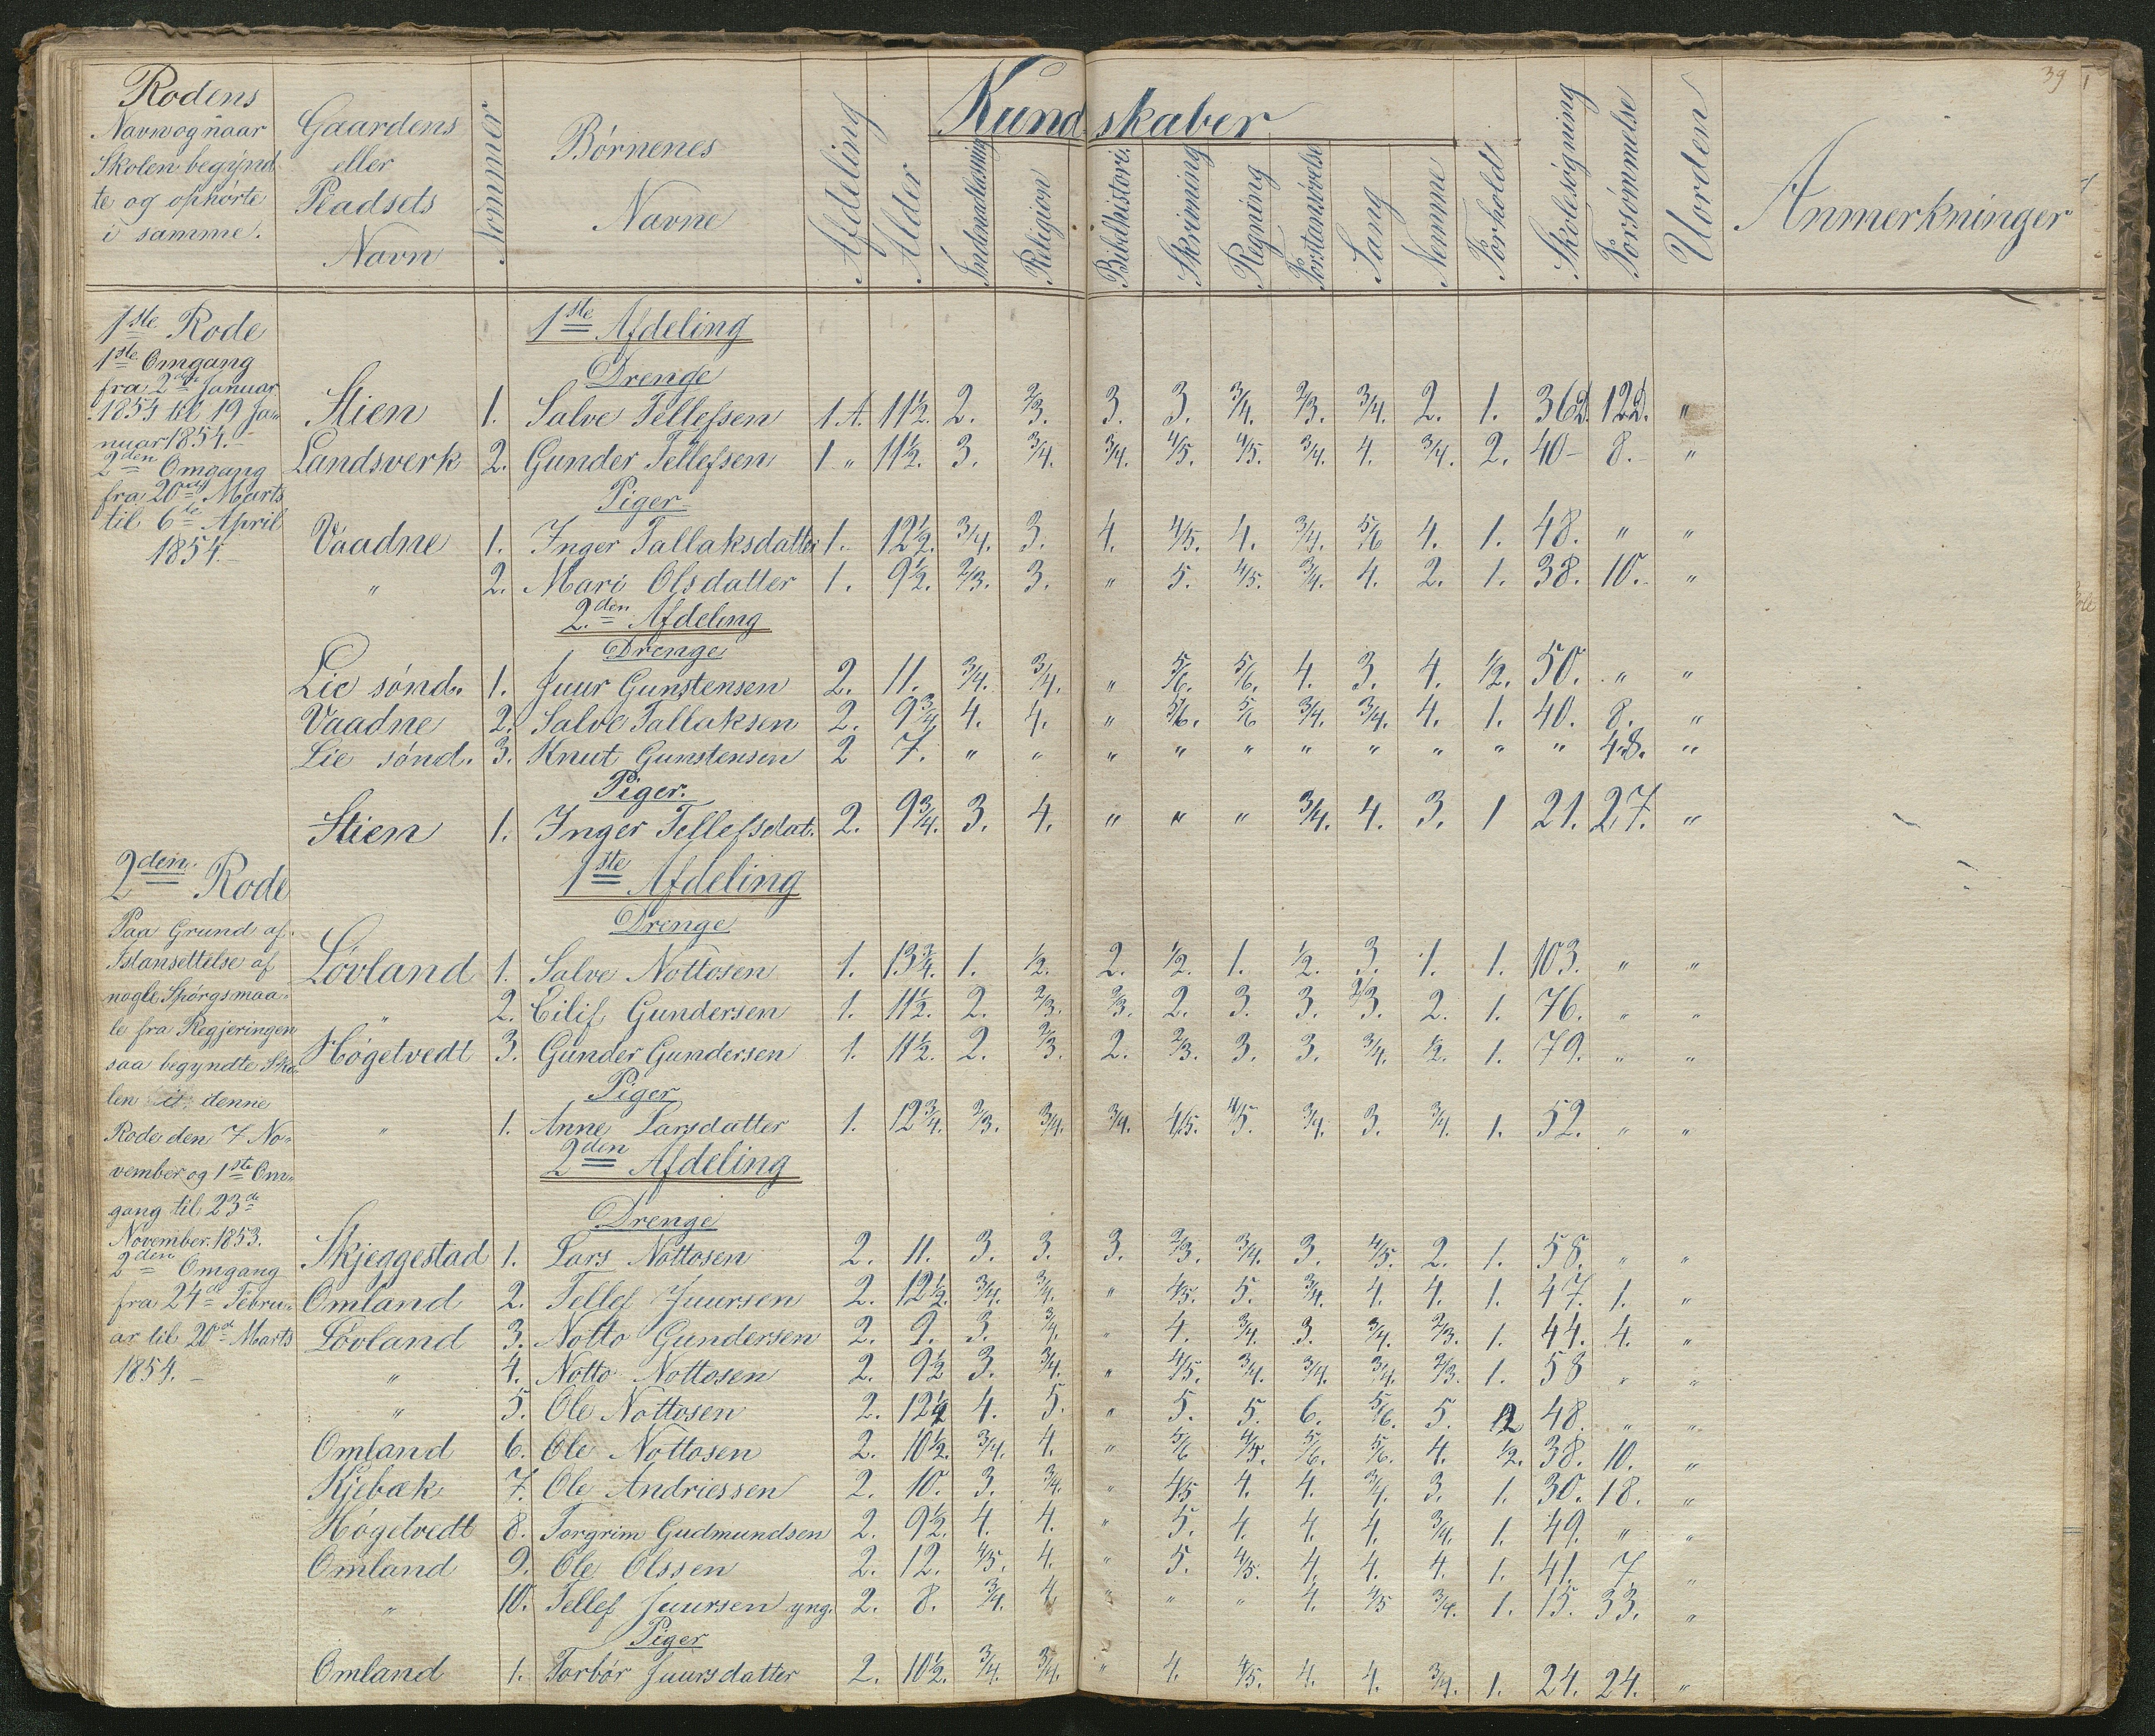 39
Rodens
Navn og naar
Skolen begynd-
te og ophørte
i samme.
Gaardens
eller
Pladsets
Navn
Nommer
Børnenes
Navne
Afdeling
Alder
Kundskaber
Indenadlæsning
Religion
Bibelhistorie.
Skrivning
Regning
Forstansøvelse
Sang
Nemme
Forhold
Skolesøgning
Forsømmelse
Uorden
Anmerkninger
1ste Rode
1ste Omgang
fra 2den Januar
1854 til 19 Ja-
nuar 1854.
2den Omgang
fra 20de Marts
til 6te April
1854.
1ste Afdeling
Drenge
Stien 1. Salve Tellefsen 1 A. 11½. 2. 2/3. 3. 3. 3/4. 2/3. 3/4. 2. 1. 36d. 12d. "
Landsverk 2. Gunder Tellefsen 1 " 11½. 3. 3/4. 3/4. 4/5. 4/5. 3/4. 4. 3/4. 2. 40- 8. "
Piger
Vaadne 1. Inger Tallaksdatter 1. 12½. 3/4. 3. 4. 4/5. 4. 3/4. 5/6 4. 1. 48. " "
" 2. Mari Olsdatter 1. 9½. 2/3. 3. " 5. 4/5. 3/4. 4. 2. 1. 38. 10. "
2den Afdeling
Drenge
Lie sønd. 1. Juur Gunstensen 2. 11. 3/4. 3/4. " 5/6. 5/6. 4. 3. 4. 1/2. 50. " "
Vaadne 2. Salve Tallaksen 2. 9¾ 4. 4. " 5/6. 5/6 3/4. 3/4. 4. 1. 40. 8. "
Lie sønd. 3. Knut Gunstensen 2 7. " " " " " " " " " " 48. "
Piger.
Stien 1. Inger Tellefsdat. 2. 9¾. 3. 4. " " " 3/4. 4. 3. 1 21. 27. "
2den Rode
Paa Grund af
Istansettelse af
nogle Spørgsmaa-
le fra Regjeringen
saa begyndte Sko-
len i denne
Rode den 7 No-
vember og 1ste Om-
gang til 23de
November 1853.
2den Omgang
fra 24de Febru-
ar til 20de Marts
1854.
1ste Afdeling
Drenge
Løvland 1. Salve Nottosen 1. 13¾. 1. 1/2. 2. 1/2. 1. 1/2. 3. 1. 1. 103. " "
" 2. Eilif Gundersen 1. 11½. 2. 2/3. 2/3. 2. 3. 3. 2/3. 2. 1. 76. " "
Høgetvedt 3. Gunder Gundersen 1. 11½. 2. 2/3. 2. 2/3. 3. 3. 3/4. 1/2. 1. 79. " "
Piger
" 1. Anne Larsdatter 1. 12¾. 2/3. 3/4. 3/4. 4/5. 4/5. 3/4. 3. 3/4. 1. 52. " "
2den Afdeling
Drenge
Skjeggestad 1. Lars Nottosen 2. 11. 3. 3. 3. 2/3. 3/4. 3. 4/5. 2. 1. 58. " "
Omland 2. Tellef Juursen 2. 12½. 3/4. 3/4. " 4/5. 5. 3/4. 4. 4. 1. 47. 1. "
Løvland 3. Notto Gundersen 2. 9. 3. 3/4. " 4. 3/4. 3. 3/4. 2/3. 1. 44. 4. "
" 4. Notto Nottosen 2. 9½ 3. 3/4. " 4/5. 3/4. 3/4. 3/4. 2/3. 1. 58 " "
" 5. Ole Nottosen 2. 12½ 4. 5. " 5. 5. 6. 5/6. 5. 2 48. " "
Omland 6. Ole Nottosen 2. 10½. 3/4. 4. " 5/6 4/5. 5/6. 5/6. 4. 1/2. 38. 10. "
Kjebæk 7. Ole Andriessen 2. 10. 3. 3/4. " 4/5 4. 4. 3/4. 3. 1. 30. 18. "
Høgetvedt 8. Torgrim Gudmundsen 2. 9½. 4. 4. " 5. 4. 4. 4. 3/4. 1. 49. " "
Omland 9. Ole Olssen 2. 12. 4/5. 4. " 5. 4/5. 4. 4. 4. 1. 41. 7 "
" 10. Tellef Juursen yng. 2. 8. 3/4. 4 " " " 4. 4/5 3/4. 1. 15. 33. "
Piger
Omland 1. Torbør Juursdatter 2. 10½. 3/4. 3/4. " 4. 4/5. 4. 4. 3/4. 1. 24. 24. "